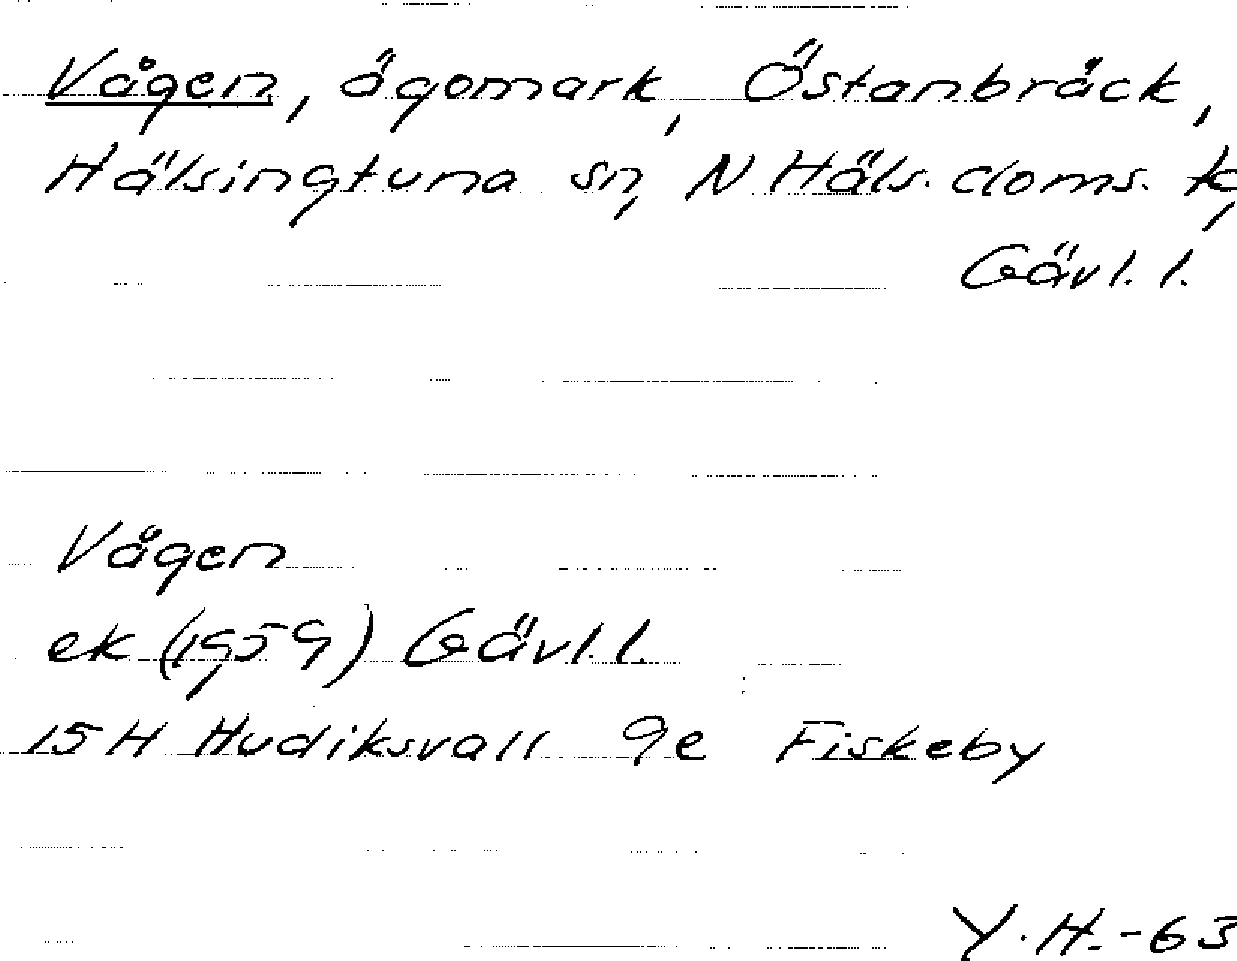 Vågen, ägomark, Östanbräck,
Hälsingtuna sn, N Häls. doms. k,
Gävl. l.
Vågen
ek (1959) Gävl. l.
15H Hudiksvall 9e Fiskeby
Y.H.-63